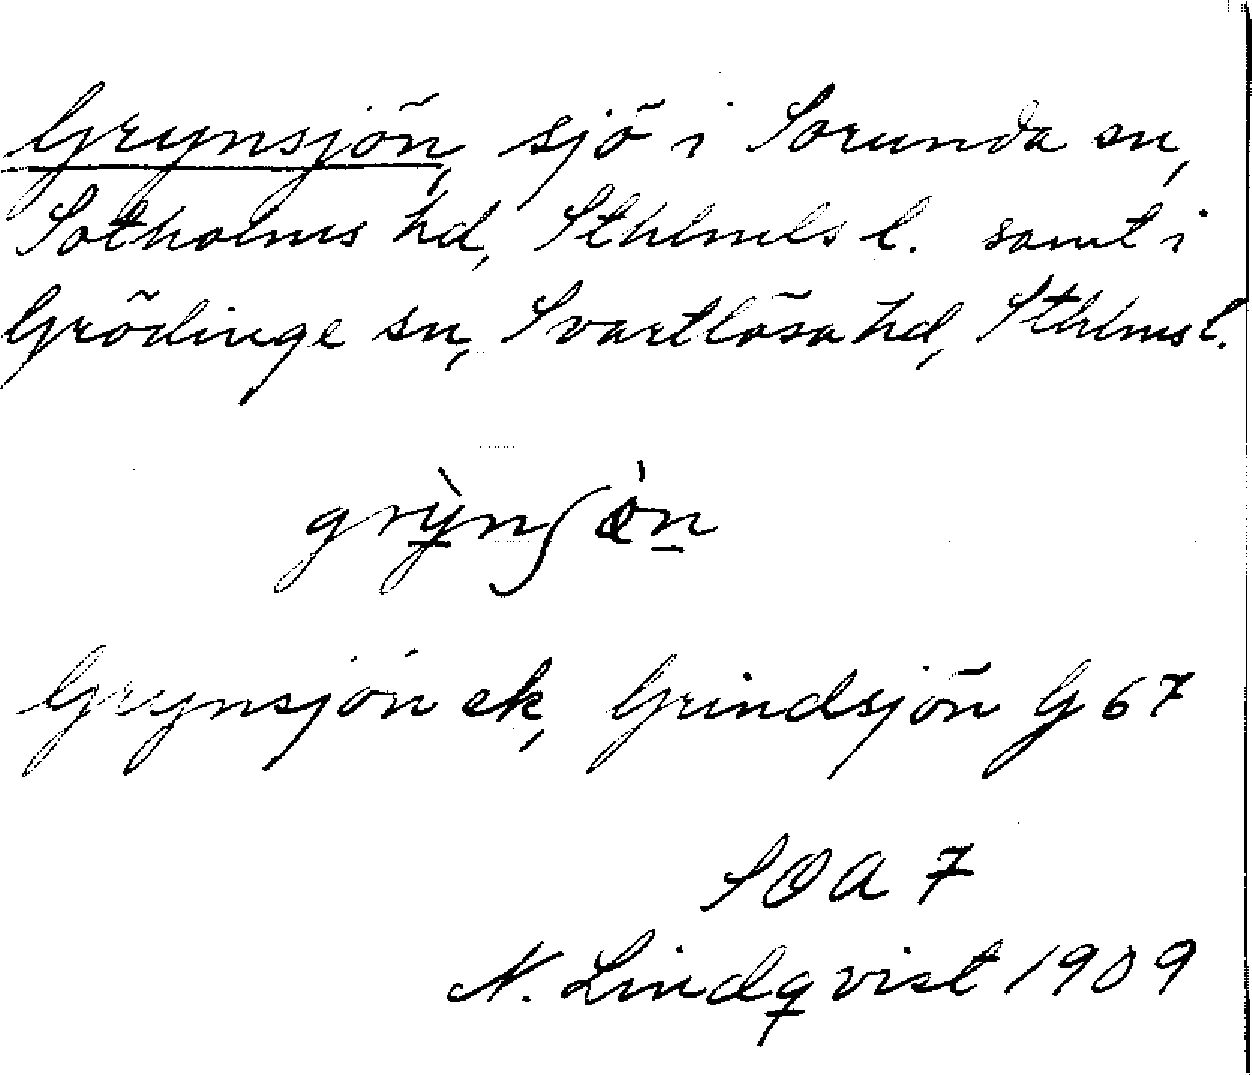 Grynsjön, sjö i Sorunda sn,
Sotholms hd, Sthlms l. samt i
Grödinge sn, Svartlösa hd, Sthlms l.
grỳnʃön
Grynsjön ek, Grindsjön G 67
SOA 7
N. Lindqvist 1909